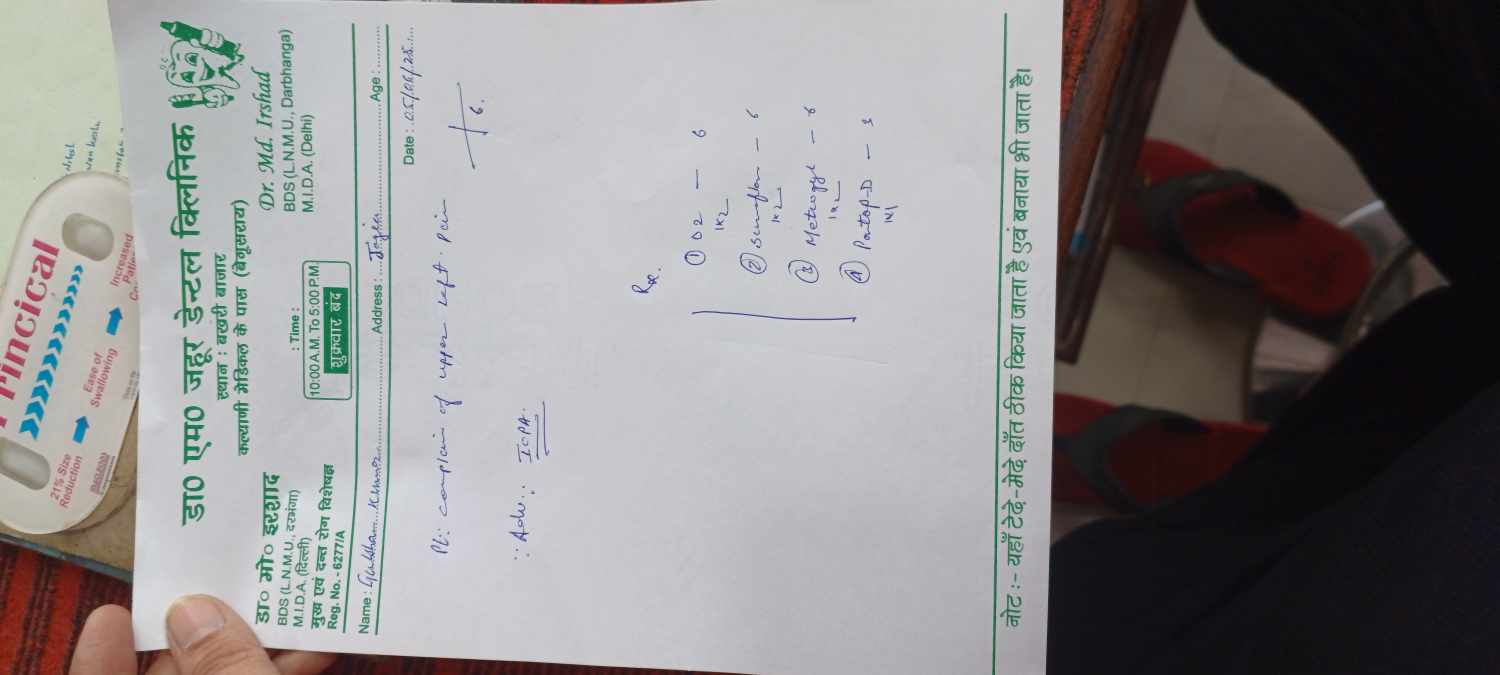 Pincical
21% Size
Reduction
Ease of
Swallowing
Increased
डा० एम० जहूर डेन्टल क्लिनिक
स्थान : बखरी बाजार
कल्याणी मेडिकल के पास (बेगूसराय)
डा० मो० इरशाद
BDS (L.N.M.U., दरभंगा)
M.I.D.A. (दिल्ली)
मुख एवं दन्त रोग विशेषज्ञ
Reg. No. - 6277/A
: Time :
10:00 A.M. To 5:00 P.M.
शुक्रवार बंद
Dr. Md. Irshad
BDS (L.N.M.U., Darbhanga)
M.I.D.A. (Delhi)
Name : Gulsham Kumar Address : Age :
Date : 05/06/25
Pt: complain of upper left pain
6.
Adv: IOPA.
Rx.
① O2 — 6
1x2
② — 6
1x2
③ Metrogyl — 6
1x2
④ Pantop-D — 3
1x1
नोट :- यहाँ टेढ़े-मेढ़े दाँत ठीक किया जाता है एवं बनाया भी जाता है।